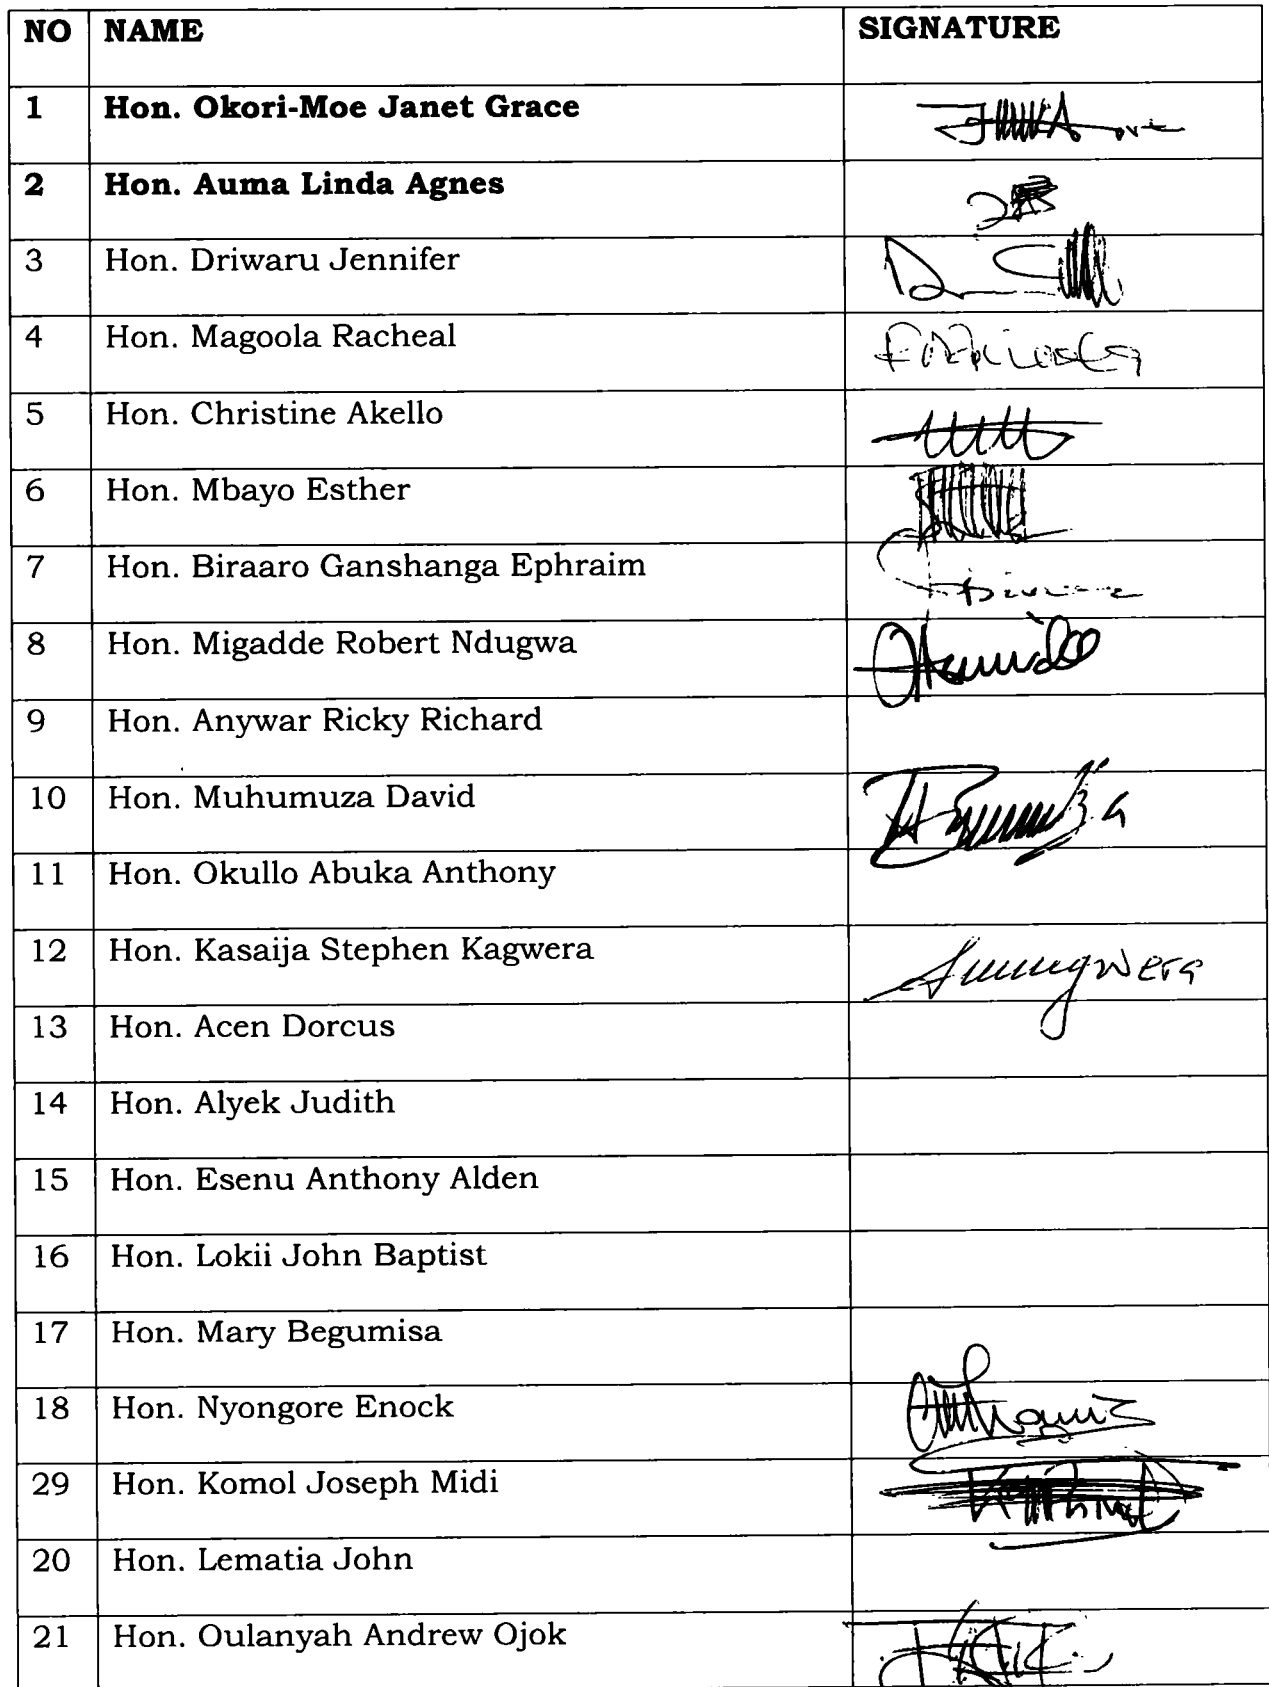 NO NAME SIGNATURE
1 Hon. Okori-Moe Janet Grace
2 Hon. Auma Linda Agnes
3 Hon. Driwaru Jennifer
4 Hon. Magoola Racheal
5 Hon. Christine Akello
6 Hon. Mbayo Esther
7 Hon. Biraaro Ganshanga Ephraim
8 Hon. Migadde Robert Ndugwa
9 Hon. Anywar Ricky Richard
10 Hon. Muhumuza David
11 Hon. Okullo Abuka Anthony
12 Hon. Kasaija Stephen Kagwera
13 Hon. Acen Dorcus
14 Hon. Alyek Judith
15 Hon. Esenu Anthony Alden
16 Hon. Lokii John Baptist
17 Hon. Mary Begumisa
18 Hon. Nyongore Enock
29 Hon. Komol Joseph Midi
20 Hon. Lematia John
21 Hon. Oulanyah Andrew Ojok